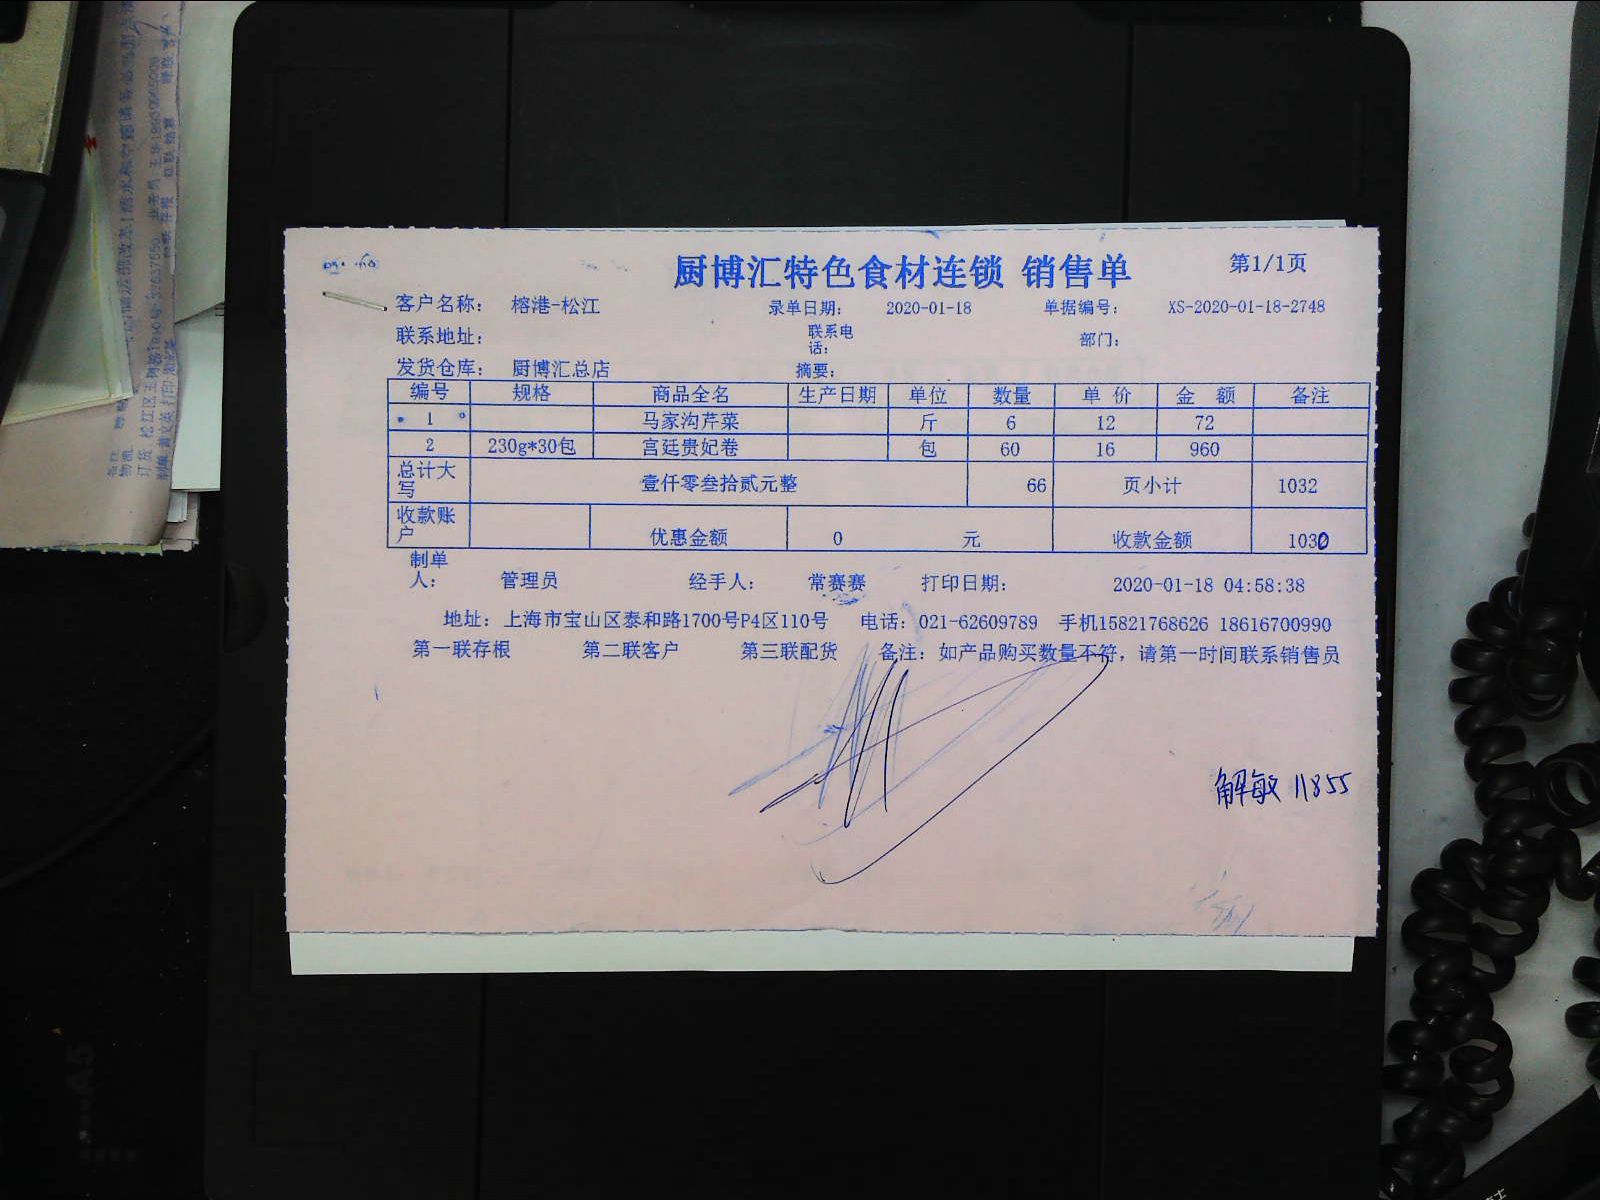 厨博汇特色食材连锁 销售单 第1/1页
客户名称： 榕港-松江 录单日期： 2020-01-18 单据编号： XS-2020-01-18-2748
联系地址： 联系电话： 部门：
发货仓库： 厨博汇总店 摘要：
编号 规格 商品全名 生产日期 单位 数量 单 价 金 额 备注
1 马家沟芹菜 斤 6 12 72
2 230g*30包 宫廷贵妃卷 包 60 16 960
总计大写 壹仟零叁拾贰元整 66 页小计 1032
收款账户 优惠金额 0 元 收款金额 1030
制单人： 管理员 经手人： 常赛赛 打印日期： 2020-01-18 04:58:38
地址：上海市宝山区泰和路1700号P4区110号 电话：021-62609789 手机15821768626 18616700990
第一联存根 第二联客户 第三联配货 备注：如产品购买数量不符，请第一时间联系销售员
解敏 11855